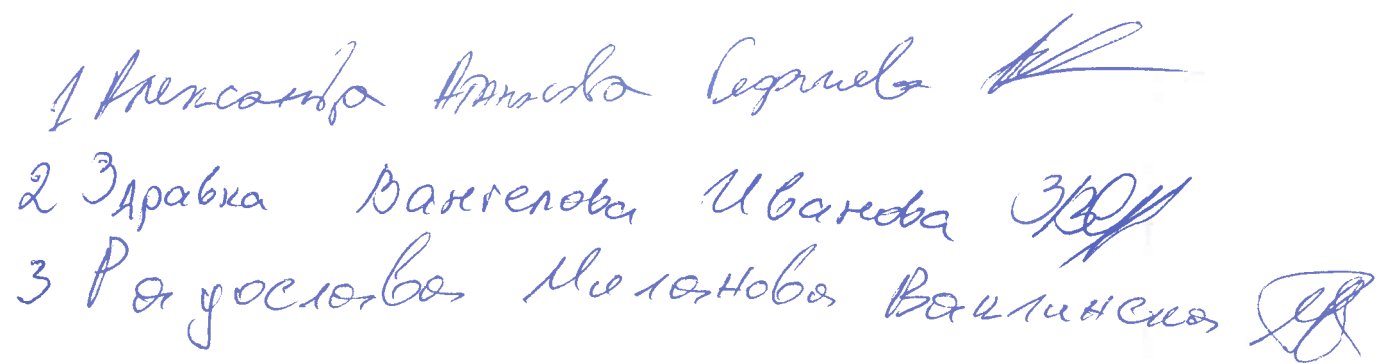 1 Александра Атанасова Георгиева
2 Здравка Вангелова Иванова
3 Радослава Миланова Ваклинска